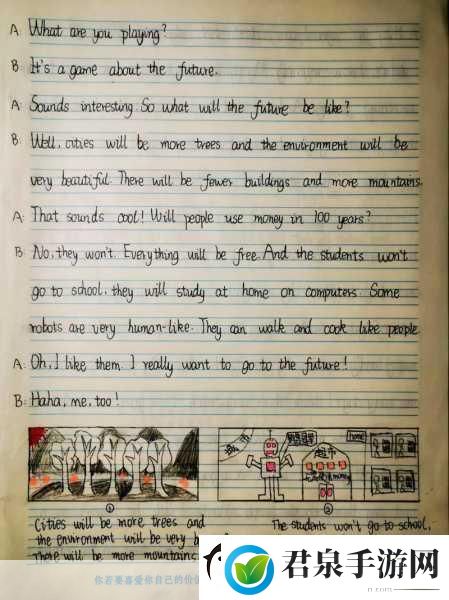 A: What are you playing?
B: It's a game about the future.
A: Sounds interesting. So what will the future be like?
B: Well, cities will be more trees and the environment will be
very beautiful. There will be fewer buildings and more mountains.
A: That sounds cool! Will people use money in 100 years?
B: No, they won't. Everything will be free. And the students won't
go to school, they will study at home on computers. Some
robots are very human-like. They can walk and cook like people.
A: Oh, I like them. I really want to go to the future!
B: Haha, me, too!
城市
超市
home
① ②
Cities will be more trees and
the environment will be very b
There will be more mountains
The students won't go to school,
你若要喜爱你自己的价值
君泉手游网